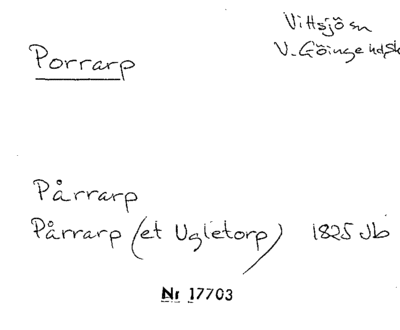 Vittsjö sn
Porrarp
V. Göinge hd, Sk
Pårrarp
Pårrarp (et Ugletorp) 1825 Jb
Nr 17703